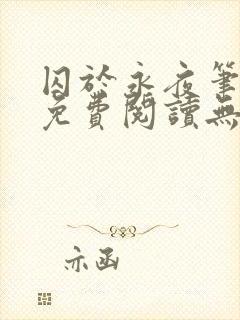 囚於永夜筆
免費閱讀無
亦函